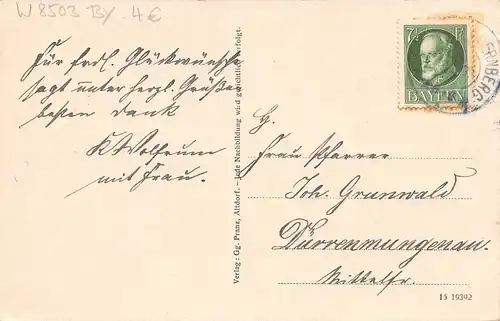 W 8503 By. 4 €
Für frdl. Glückwünsche
sagt unter herzl. Grüßen
besten Dank
K Wolfrum
mit Frau.
Verlag: Gg. Pranz, Altdorf. – Jede Nachbildung wird gerichtlich verfolgt.
7½ Pf
BAYERN
RNBERG
H.
Frau Pfarrer
Joh. Grunwald
Dürrenmungenau.
Mittelfr.
15 19392